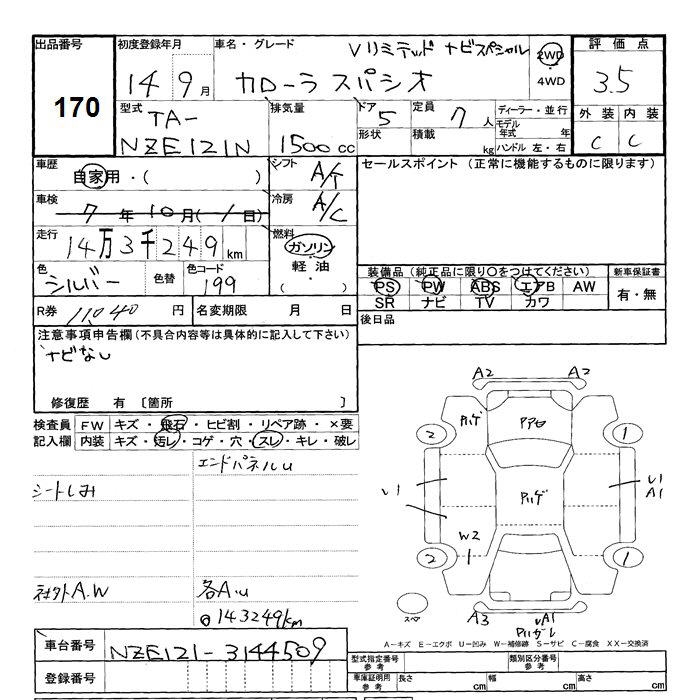 出品番号 170
初度登録年月 14 9月
車名・グレード Vリミテッド ナビスペシャル
カローラスパシオ
2WD
4WD
評価点 3.5
外装 内装
C C
型式 TA-
NZE121N
排気量 1500cc
ドア 5
形状
定員 7人
積載 kg
ディーラー・並行
モデル年式 年
ハンドル 左・右
車歴 自家用・( )
シフト A/T
セールスポイント (正常に機能するものに限ります)
車検 7年10月(-/日)
冷房 A/C
走行 14万3千249km
燃料 ガソリン
軽油
( )
色 シルバー 色替 色コード 199
装備品 (純正品に限り○をつけてください)
新車保証書
PS PW ABS エアB AW
SR ナビ TV カワ
有・無
R券 11040円
名変期限 月 日
後日品
注意事項申告欄(不具合内容等は具体的に記入して下さい)
ナビなし
修復歴 有 〔箇所 〕
検査員記入欄
FW キズ・飛石・ヒビ割・リペア跡・×要
内装 キズ・汚レ・コゲ・穴・スレ・キレ・破レ
エンドパネルu
シートしみ
社外A.W 各A.u
◎143249km
A2 A2
ハゲ
2 1
ハゲ
U1 U1
A1
W2
1
2 1
スペア
A3 UA1
A-キズ E-エクボ U-凹み W-補修跡 S-サビ C-腐食 XX-交換済
車台番号 NZE121-3144509
登録番号
型式指定番号 参考
類別区分番号 参考
車庫証明用 参考 長さ cm 幅 cm 高さ cm